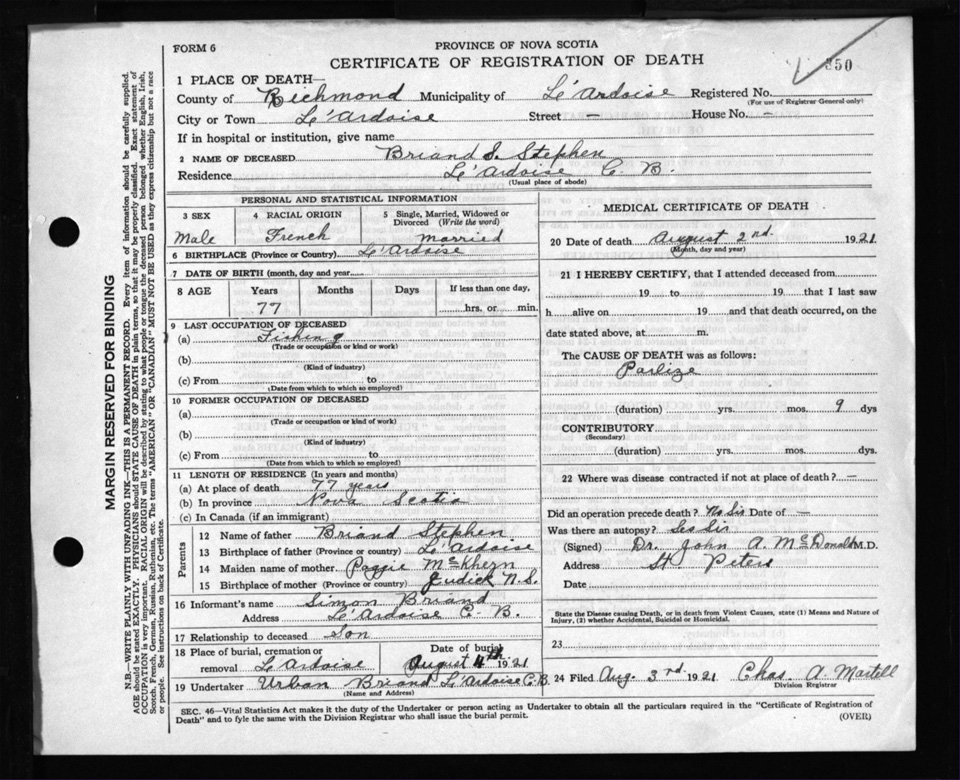 FORM 6
PROVINCE OF NOVA SCOTIA
CERTIFICATE OF REGISTRATION OF DEATH
350
1 PLACE OF DEATH—
County of Richmond Municipality of Le'Ardoise Registered No.
(For use of Registrar General only)
City or Town Le'Ardoise Street – House No. –
If in hospital or institution, give name
2 NAME OF DECEASED Briand S. Stephen
Residence Le'ardoise C. B.
(Usual place of abode)
PERSONAL AND STATISTICAL INFORMATION
3 SEX 4 RACIAL ORIGIN 5 Single, Married, Widowed or Divorced (Write the word)
Male French Married
6 BIRTHPLACE (Province or Country) Le'Ardoise
7 DATE OF BIRTH (month, day and year)
8 AGE Years Months Days If less than one day,
77 hrs. or min.
9 LAST OCCUPATION OF DECEASED
(a) Fishing
(Trade or occupation or kind or work)
(b)
(Kind of industry)
(c) From to
(Date from which to which so employed)
10 FORMER OCCUPATION OF DECEASED
(a)
(Trade or occupation or kind of work)
(b)
(Kind of industry)
(c) From to
(Date from which to which so employed)
11 LENGTH OF RESIDENCE (In years and months)
(a) At place of death 77 years
(b) In province Nova Scotia
(c) In Canada (if an immigrant)
Parents
12 Name of father Briand Stephen
13 Birthplace of father (Province or country) Le Ardoise
14 Maiden name of mother
15 Birthplace of mother (Province or country) Judick N.S.
16 Informant's name Simon Briand
Address Le'Ardoise C. B.
17 Relationship to deceased Son
18 Place of burial, cremation or removal Le Ardoise
Date of burial August 4th 1921
19 Undertaker Urban Briand Le'Ardoise C.B.
(Name and Address)
MEDICAL CERTIFICATE OF DEATH
20 Date of death August 2nd. 1921
(Month, day and year)
21 I HEREBY CERTIFY, that I attended deceased from
19 to 19 that I last saw
h alive on 19 and that death occurred, on the
date stated above, at m.
The CAUSE OF DEATH was as follows:
Parlize
(duration) yrs. mos. 9 dys
CONTRIBUTORY
(Secondary)
(duration) yrs. mos. dys.
22 Where was disease contracted if not at place of death? –
Did an operation precede death? No Sir Date of –
Was there an autopsy? Sir
(Signed) Dr. John A. McDonald M.D.
Address St Peters
Date
State the Disease causing Death, or in death from Violent Causes, state (1) Means and Nature of
Injury, (2) whether Accidental, Suicidal or Homicidal.
23
24 Filed Aug. 3rd 1921 Chas. A Martell
Division Registrar
SEC. 46—Vital Statistics Act makes it the duty of the Undertaker or person acting as Undertaker to obtain all the particulars required in the "Certificate of Registration of
Death" and to fyle the same with the Division Registrar who shall issue the burial permit.
(OVER)
MARGIN RESERVED FOR BINDING
N.B.—WRITE PLAINLY WITH UNFADING INK—THIS IS A PERMANENT RECORD. Every item of information should be carefully supplied.
AGE should be stated EXACTLY. PHYSICIANS should STATE CAUSE OF DEATH in plain terms, so that it may be properly classified. Exact statement of
OCCUPATION is very important. RACIAL ORIGIN will be described by stating to what people or tongue the deceased person belonged whether English, Irish,
Scotch, French, German, Russian, Ruthenian, etc. The terms "AMERICAN" OR "CANADIAN" MUST NOT BE USED as they express citizenship but not a race
or people. See instructions on back of Certificate.